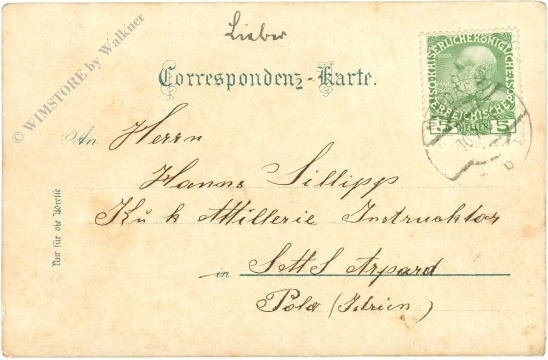 Lieber
Correspondenz-Karte.
An Herrn
Hanns Sillipp
K u k Attillerie Instruktor
in SMS Arpard
Pola (Istrien)
Nur für die Adresse
KAISERLICHE KÖNIGLICHE
ÖSTERREICHISCHE
5 HELLER 5
© WIMSTORE by Walkner